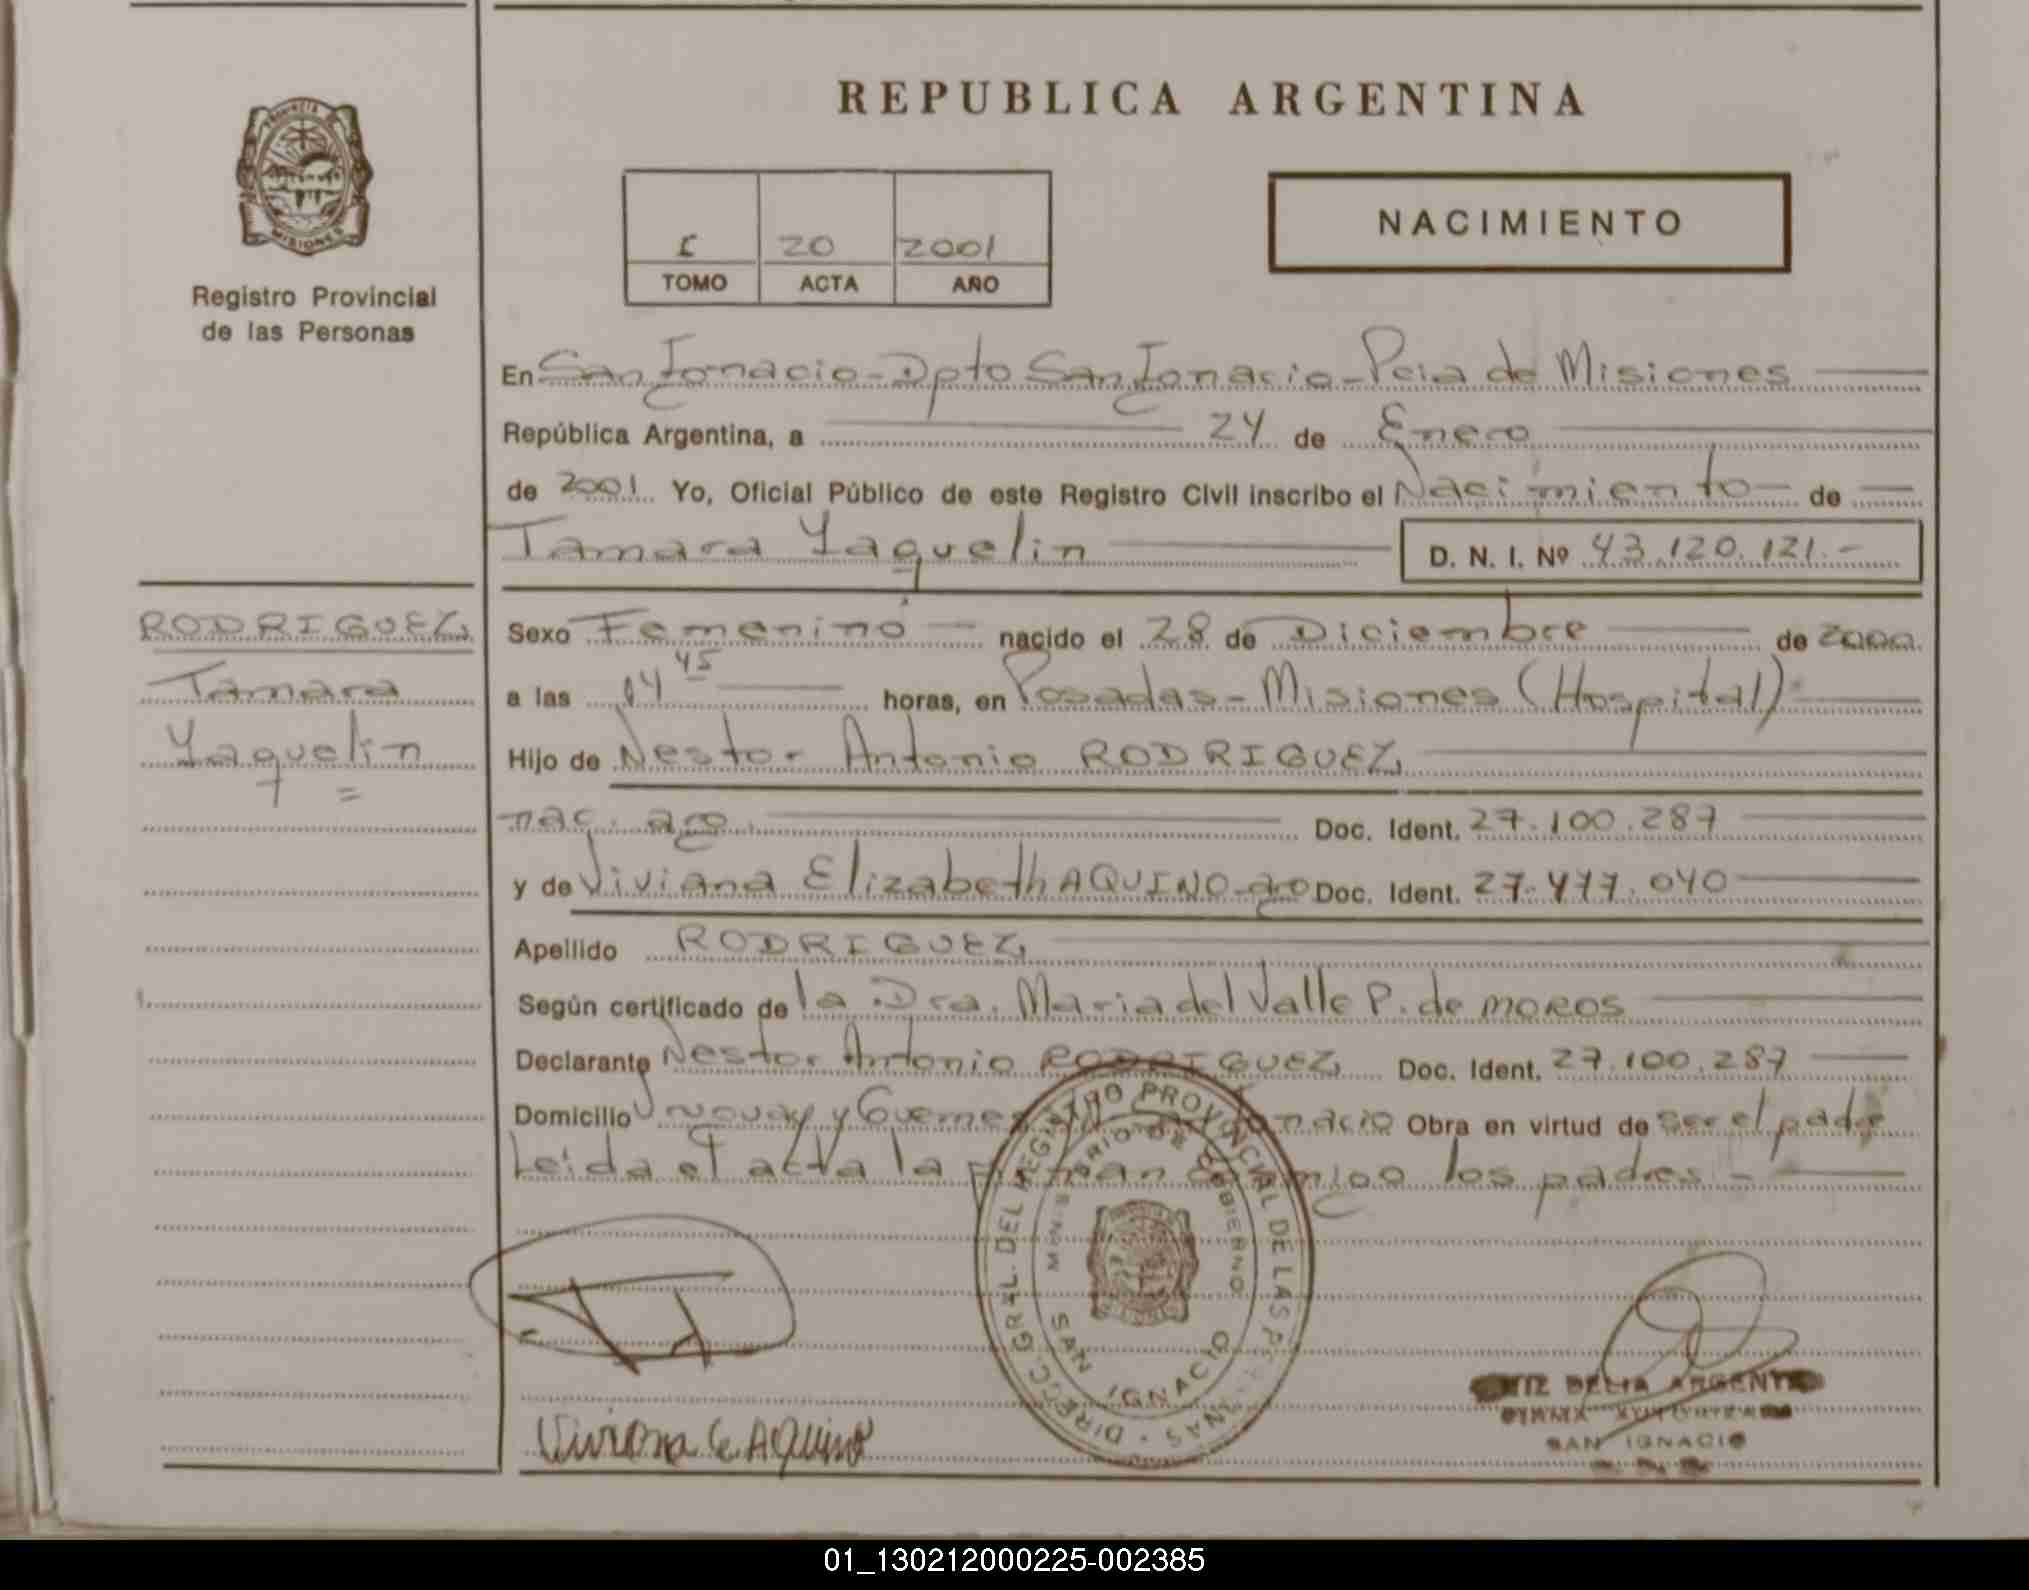 REPUBLICA ARGENTINA
PROVINCIA DE
MISIONES
Registro Provincial
de las Personas
I 20 2001
TOMO ACTA AÑO
NACIMIENTO
En San Ignacio - Dpto San Ignacio - Pcia de Misiones
República Argentina, a 24 de Enero
de 2001 Yo, Oficial Público de este Registro Civil inscribo el Nacimiento de
Tamara Yaquelin D. N. I. Nº 43.120.121.-
RODRIGUEZ
Tamara
Yaquelin
Sexo Femenino nacido el 28 de Diciembre de 2000
a las 04 45 horas, en Posadas - Misiones (Hospital)
Hijo de Nestor Antonio RODRIGUEZ
nac. arg. Doc. Ident. 27.100.287
y de Viviana Elizabeth AQUINO - arg Doc. Ident. 27.477.040
Apellido RODRIGUEZ
Según certificado de la Dra. Maria del Valle P. de MOROS
Declarante Nestor Antonio RODRIGUEZ Doc. Ident. 27.100.287
Domicilio Uruguay y Guemes Ignacio Obra en virtud de ser el padre
Leida el acta la firman conmigo los padres -
DIRECC. GRAL. DEL REGISTRO PROVINCIAL DE LAS PERSONAS
MINISTERIO DE GOBIERNO
SAN IGNACIO
Viviana E Aquino
DELIA ARGENT
FIRMA AUTORIZADA
SAN IGNACIO
01_130212000225-002385